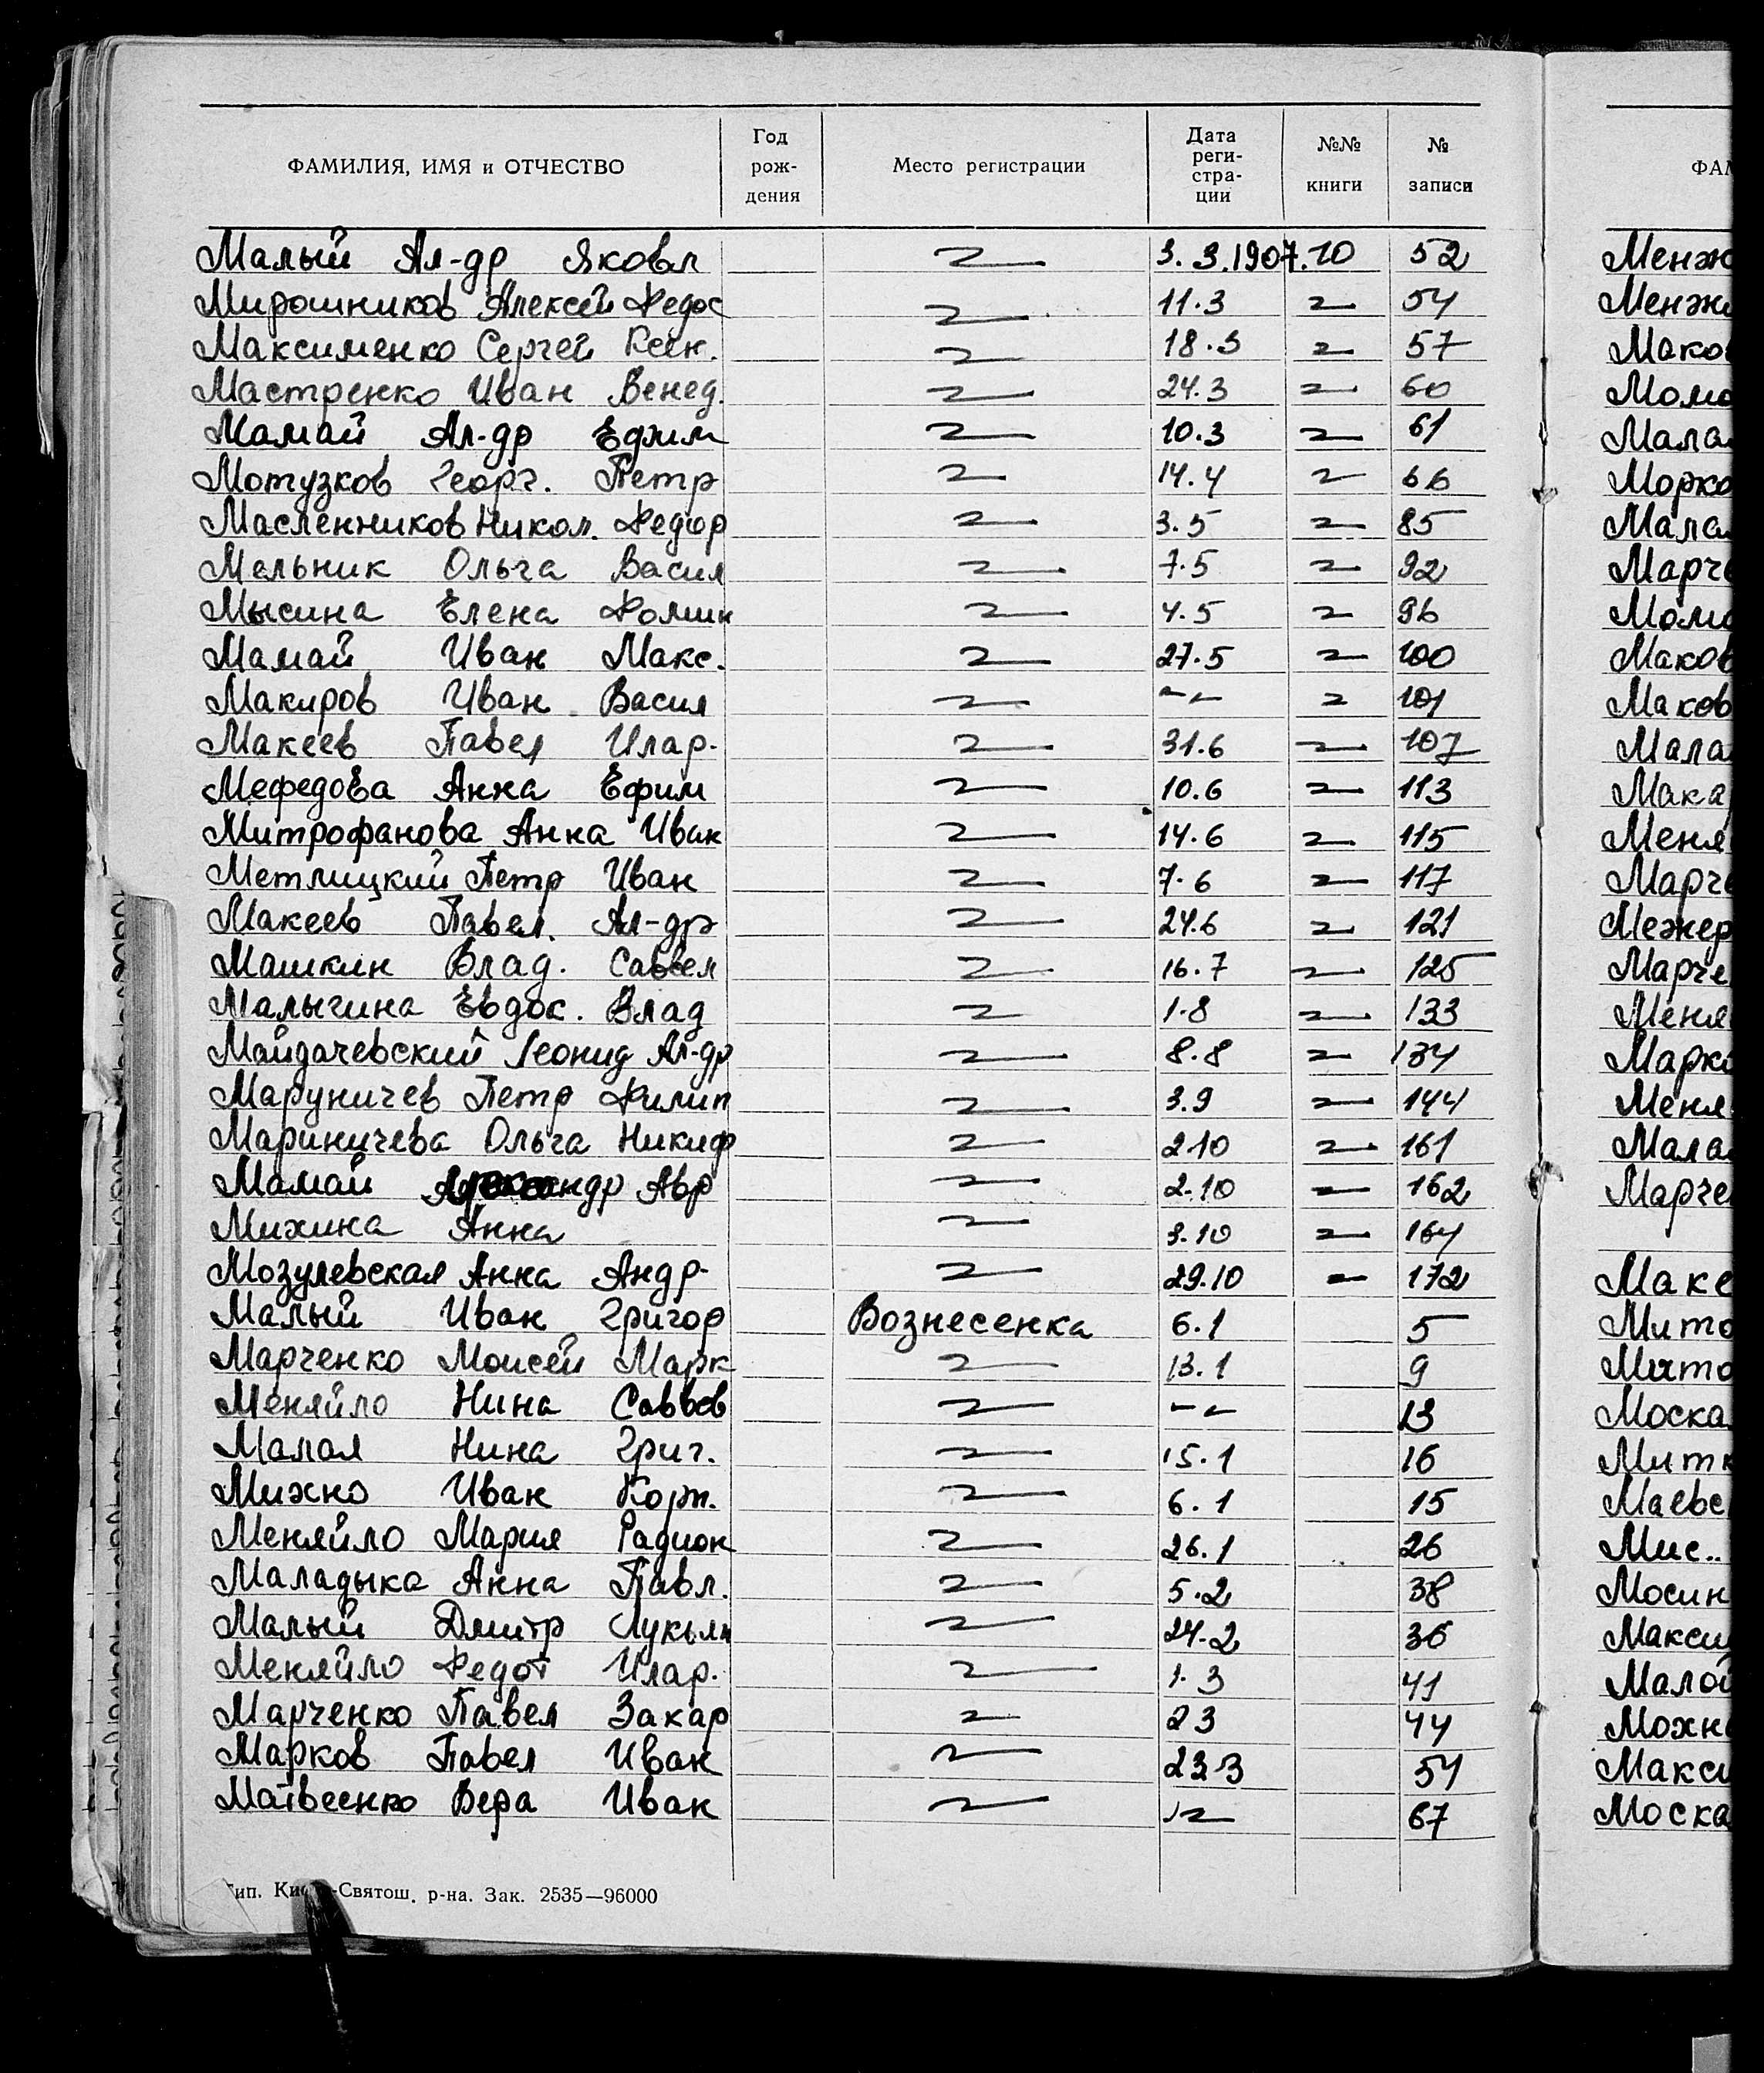 ФАМИЛИЯ, ИМЯ и ОТЧЕСТВО Год рождения Место регистрации Дата регистрации №№ книги № записи
Малый Ал-др Яковл 3.3.1907. 10 52
Мирошников Алексей Федос 11.3 54
Максименко Сергей Ксен. 18.3 57
Мастренко Иван Венед. 24.3 60
Мамай Ал-др Ефим 10.3 61
Мотузков Георг. Петр 14.4 66
Масленников Никол. Федор 3.5 85
Мельник Ольга Васил 7.5 92
Мысина Елена Фомин 4.5 96
Мамай Иван Макс. 27.5 100
Макиров Иван Васил -- 101
Макеев Павел Илар. 31.6 107
Мефедова Анна Ефим 10.6 113
Митрофанова Анна Иван 14.6 115
Метлицкий Петр Иван 7.6 117
Макеев Павел. Ал-др 24.6 121
Машкин Влад. Савел 16.7 125
Малыгина Евдок. Влад 1.8 133
Майдачевский Леонид Ал-др 8.8 134
Маруничев Петр Филип 3.9 144
Мариничева Ольга Никиф 2.10 161
Мамай Александр Авр 2.10 162
Михина Анна 3.10 164
Мозулевская Анна Андр. 29.10 172
Малый Иван Григор Вознесенка 6.1 5
Марченко Моисей Марк 13.1 9
Меняйло Нина Саввов -- 13
Малая Нина Григ. 15.1 16
Михно Иван Корн. 6.1 15
Меняйло Мария Радион 26.1 26
Маладыка Анна Павл. 5.2 38
Малый Дмитр Лукьян 24.2 36
Меняйло Федот Илар. 1.3 41
Марченко Павел Захар 23 44
Марков Павел Иван 23.3 54
Матвеенко Вера Иван 67
Зак. 2535—96000